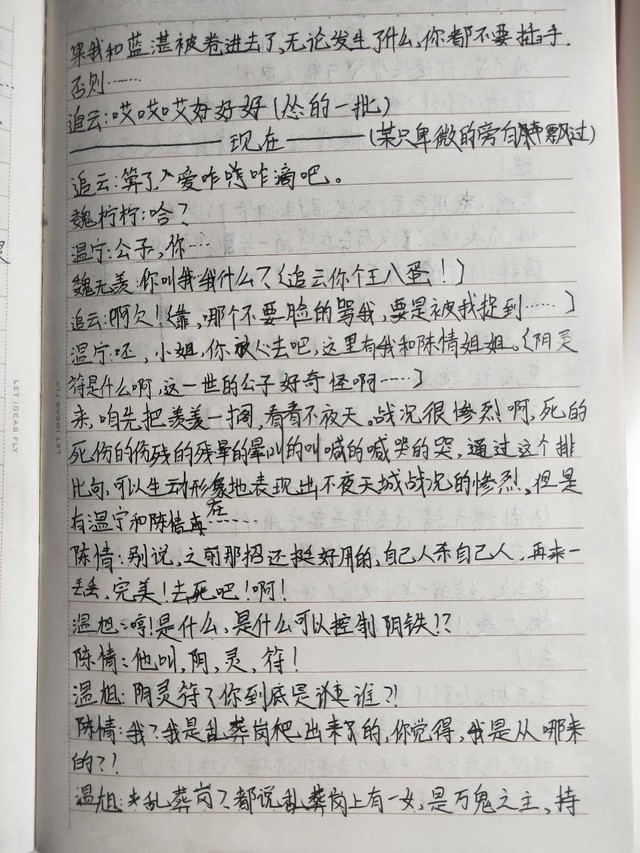 果我和蓝湛被卷进去了,无论发生了什么,你都不要插手.
否则……
追云:哎哎哎好好好(怂的一批)
————现在————(某只卑微的旁白飘过)
追云:算了,爱咋咋滴吧。
魏柠柠:哈?
温宁:公子,你…
魏无羡:你叫我我什么?〔追云你个王八蛋!〕
追云:啊欠!〔靠,哪个不要脸的骂我,要是被我捉到……〕
温宁:呸,小姐,你放心去吧,这里有我和陈情姐姐。〔阴灵
符是什么啊,这一世的公子好奇怪啊……〕
来,咱先把羡羡一搁,看看不夜天。战况很惨烈啊,死的
死伤的伤残的残晕的晕叫的叫喊的喊哭的哭,通过这个排
比句,可以生动形象地表现出不夜天城战况的惨烈。但是
有温宁和陈情在……
陈情:别说,之前那招还挺好用的,自己人杀自己人,再来一
丢丢,完美!去死吧!啊!
温旭:哼!是什么,是什么可以控制阴铁!?
陈情:他叫,阴,灵,符!
温旭:阴灵符?你到底是谁?!
陈情:我?我是乱葬岗爬出来的,你觉得,我是从哪来
的?!
温旭:乱葬岗?都说乱葬岗上有一女,是万鬼之主、持
LET IDEAS FLY